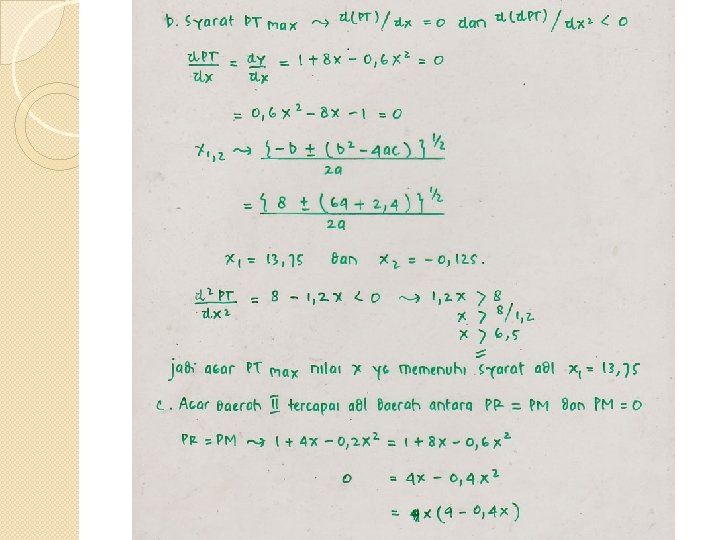 b. Syarat PT max ⇝ d(PT)/dx = 0 dan d(dPT)/dx² < 0
dPT/dx = dy/dx = 1 + 8x - 0,6x² = 0
= 0,6x² - 8x - 1 = 0
x1,2 ⇝ {-b ± (b² - 4ac)}^½ / 2a
= {8 ± (64 + 2,4)}^½ / 2a
x₁ = 13,75 dan x₂ = -0,125.
d²PT/dx² = 8 - 1,2x < 0 ⇝ 1,2x > 8
x > 8/1,2
x > 6,5
jadi agar PT max nilai x yg memenuhi syarat adl x₁ = 13,75
c. Agar Daerah II tercapai adl Daerah antara PR = PM dan PM = 0
PR = PM ⇝ 1 + 4x - 0,2x² = 1 + 8x - 0,6x²
0 = 4x - 0,4x²
= x(4 - 0,4x)